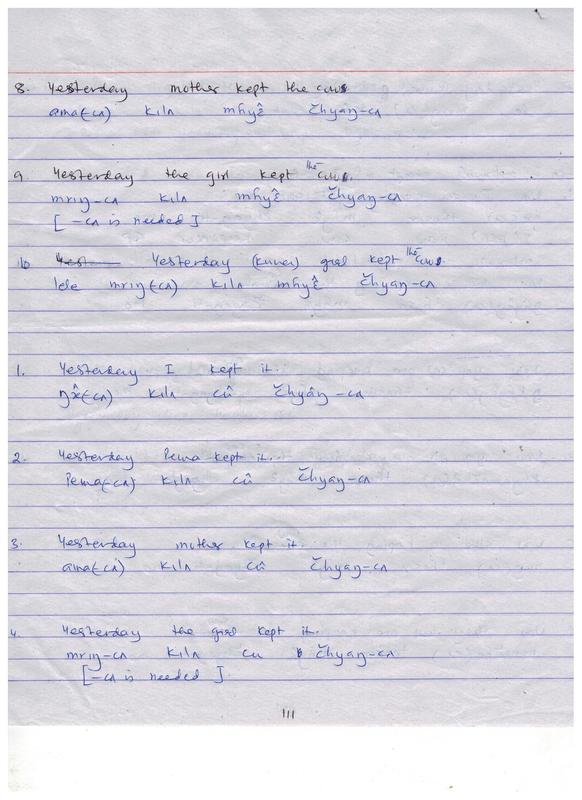 8. Yesterday mother kept the cows
ama(-cʌ) kilʌ mhyɛ̂ čhyaŋ-cʌ
9 Yesterday the girl kept the cows.
mriŋ-cʌ kilʌ mhyɛ̂ čhyaŋ-cʌ
[-cʌ is needed]
10 Yesterday girl kept the cows.
lole mriŋ(-cʌ) kilʌ mhyɛ̂ čhyaŋ-cʌ
1. Yesterday I kept it.
kilʌ cû čhyâŋ-cʌ
2. Yesterday Pema kept it.
Pema(-cʌ) kilʌ cû čhyaŋ-cʌ
3. Yesterday mother kept it.
ama(-cʌ) kilʌ cû čhyaŋ-cʌ
4. Yesterday the girl kept it.
mriŋ-cʌ kilʌ cu čhyaŋ-cʌ
[-cʌ is needed]
111